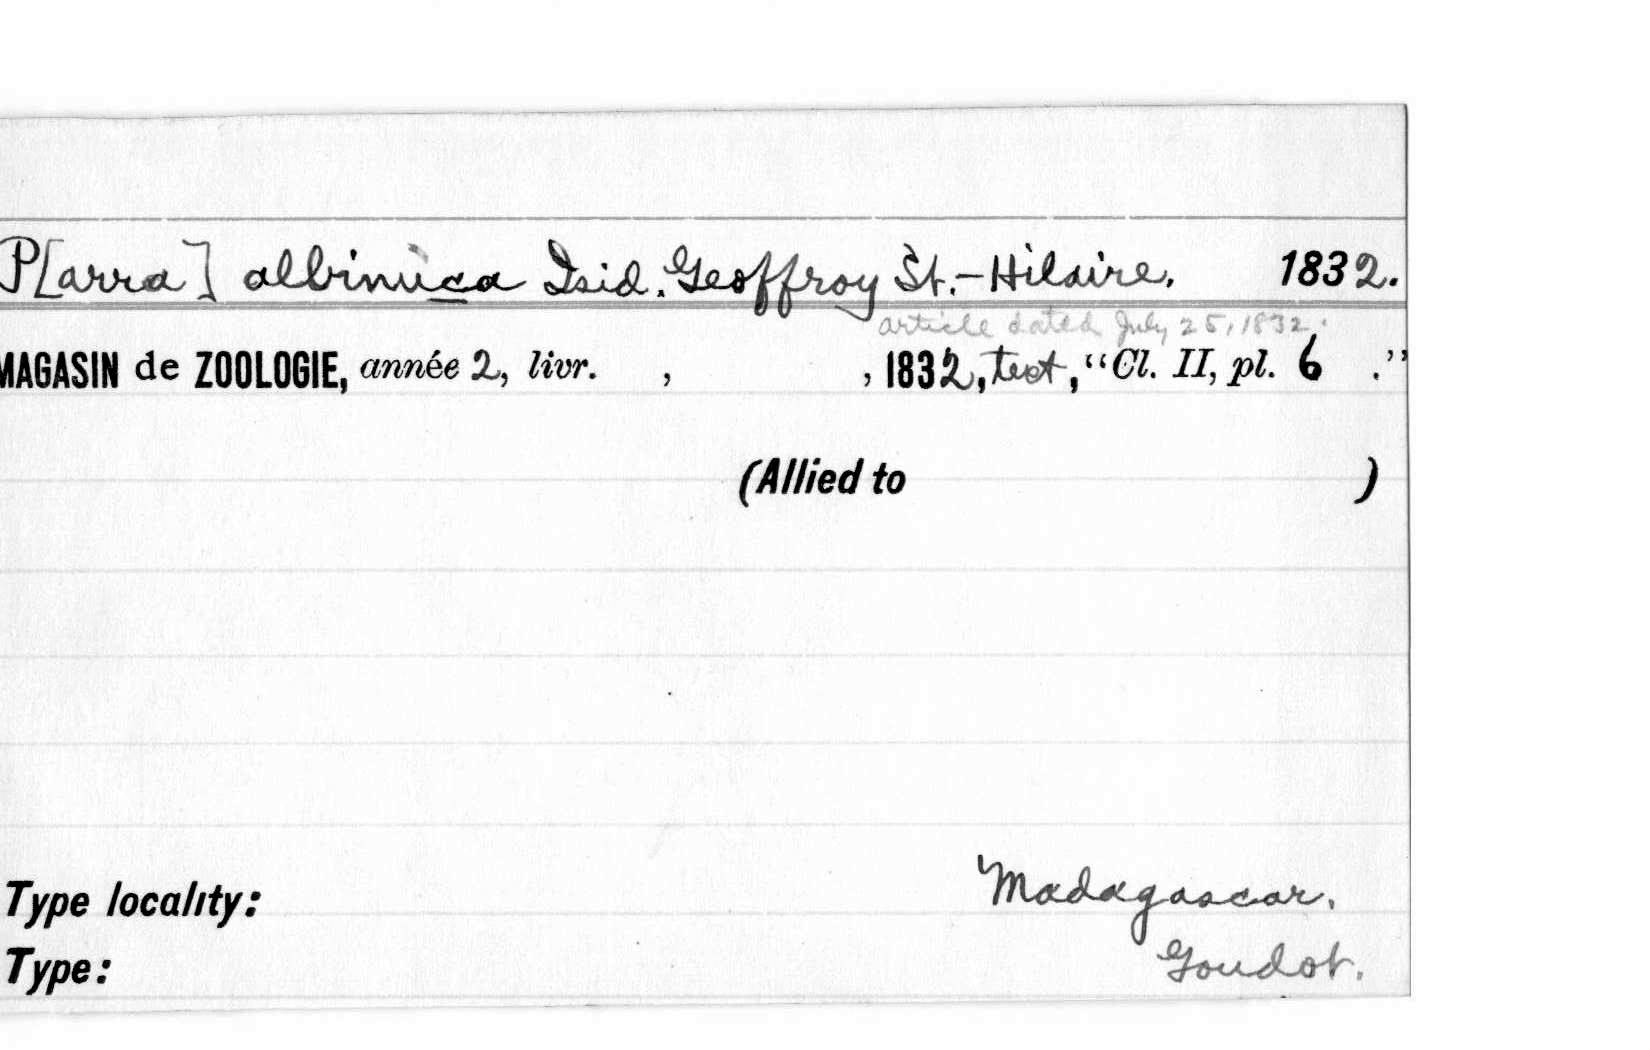 P[arra] albinuca Isid. Geoffroy St.-Hilaire. 1832.
article dated July 25, 1832.
MAGASIN de ZOOLOGIE, année 2, livr. , , 1832, text, “Cl. II, pl. 6 .”
(Allied to )
Type locality: Madagascar.
Type: Goudot.